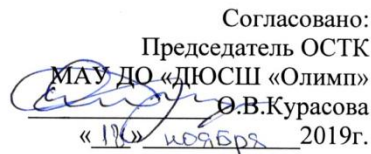 Согласовано:
Председатель ОСТК
МАУ ДО «ДЮСШ «Олимп»
О.В.Курасова
«18» ноября 2019г.